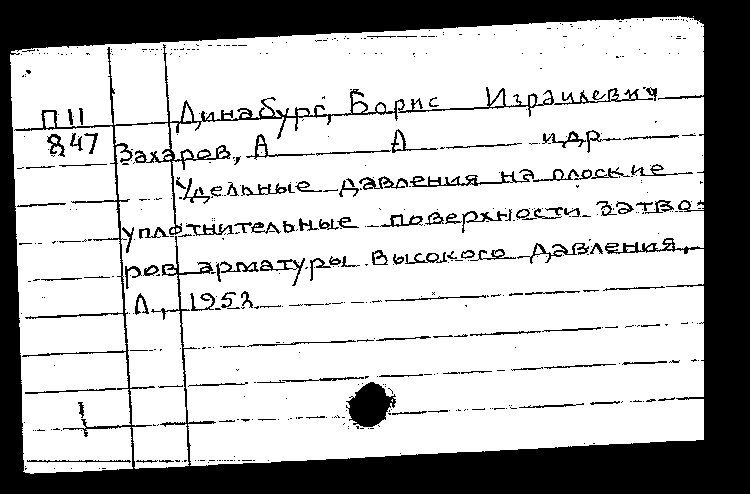 П II Динабург, Борис Израилевич
847 Захаров, А А и др
Удельные давления на плоские
уплотнительные поверхности затво-
ров арматуры высокого давления.
Л., 1952